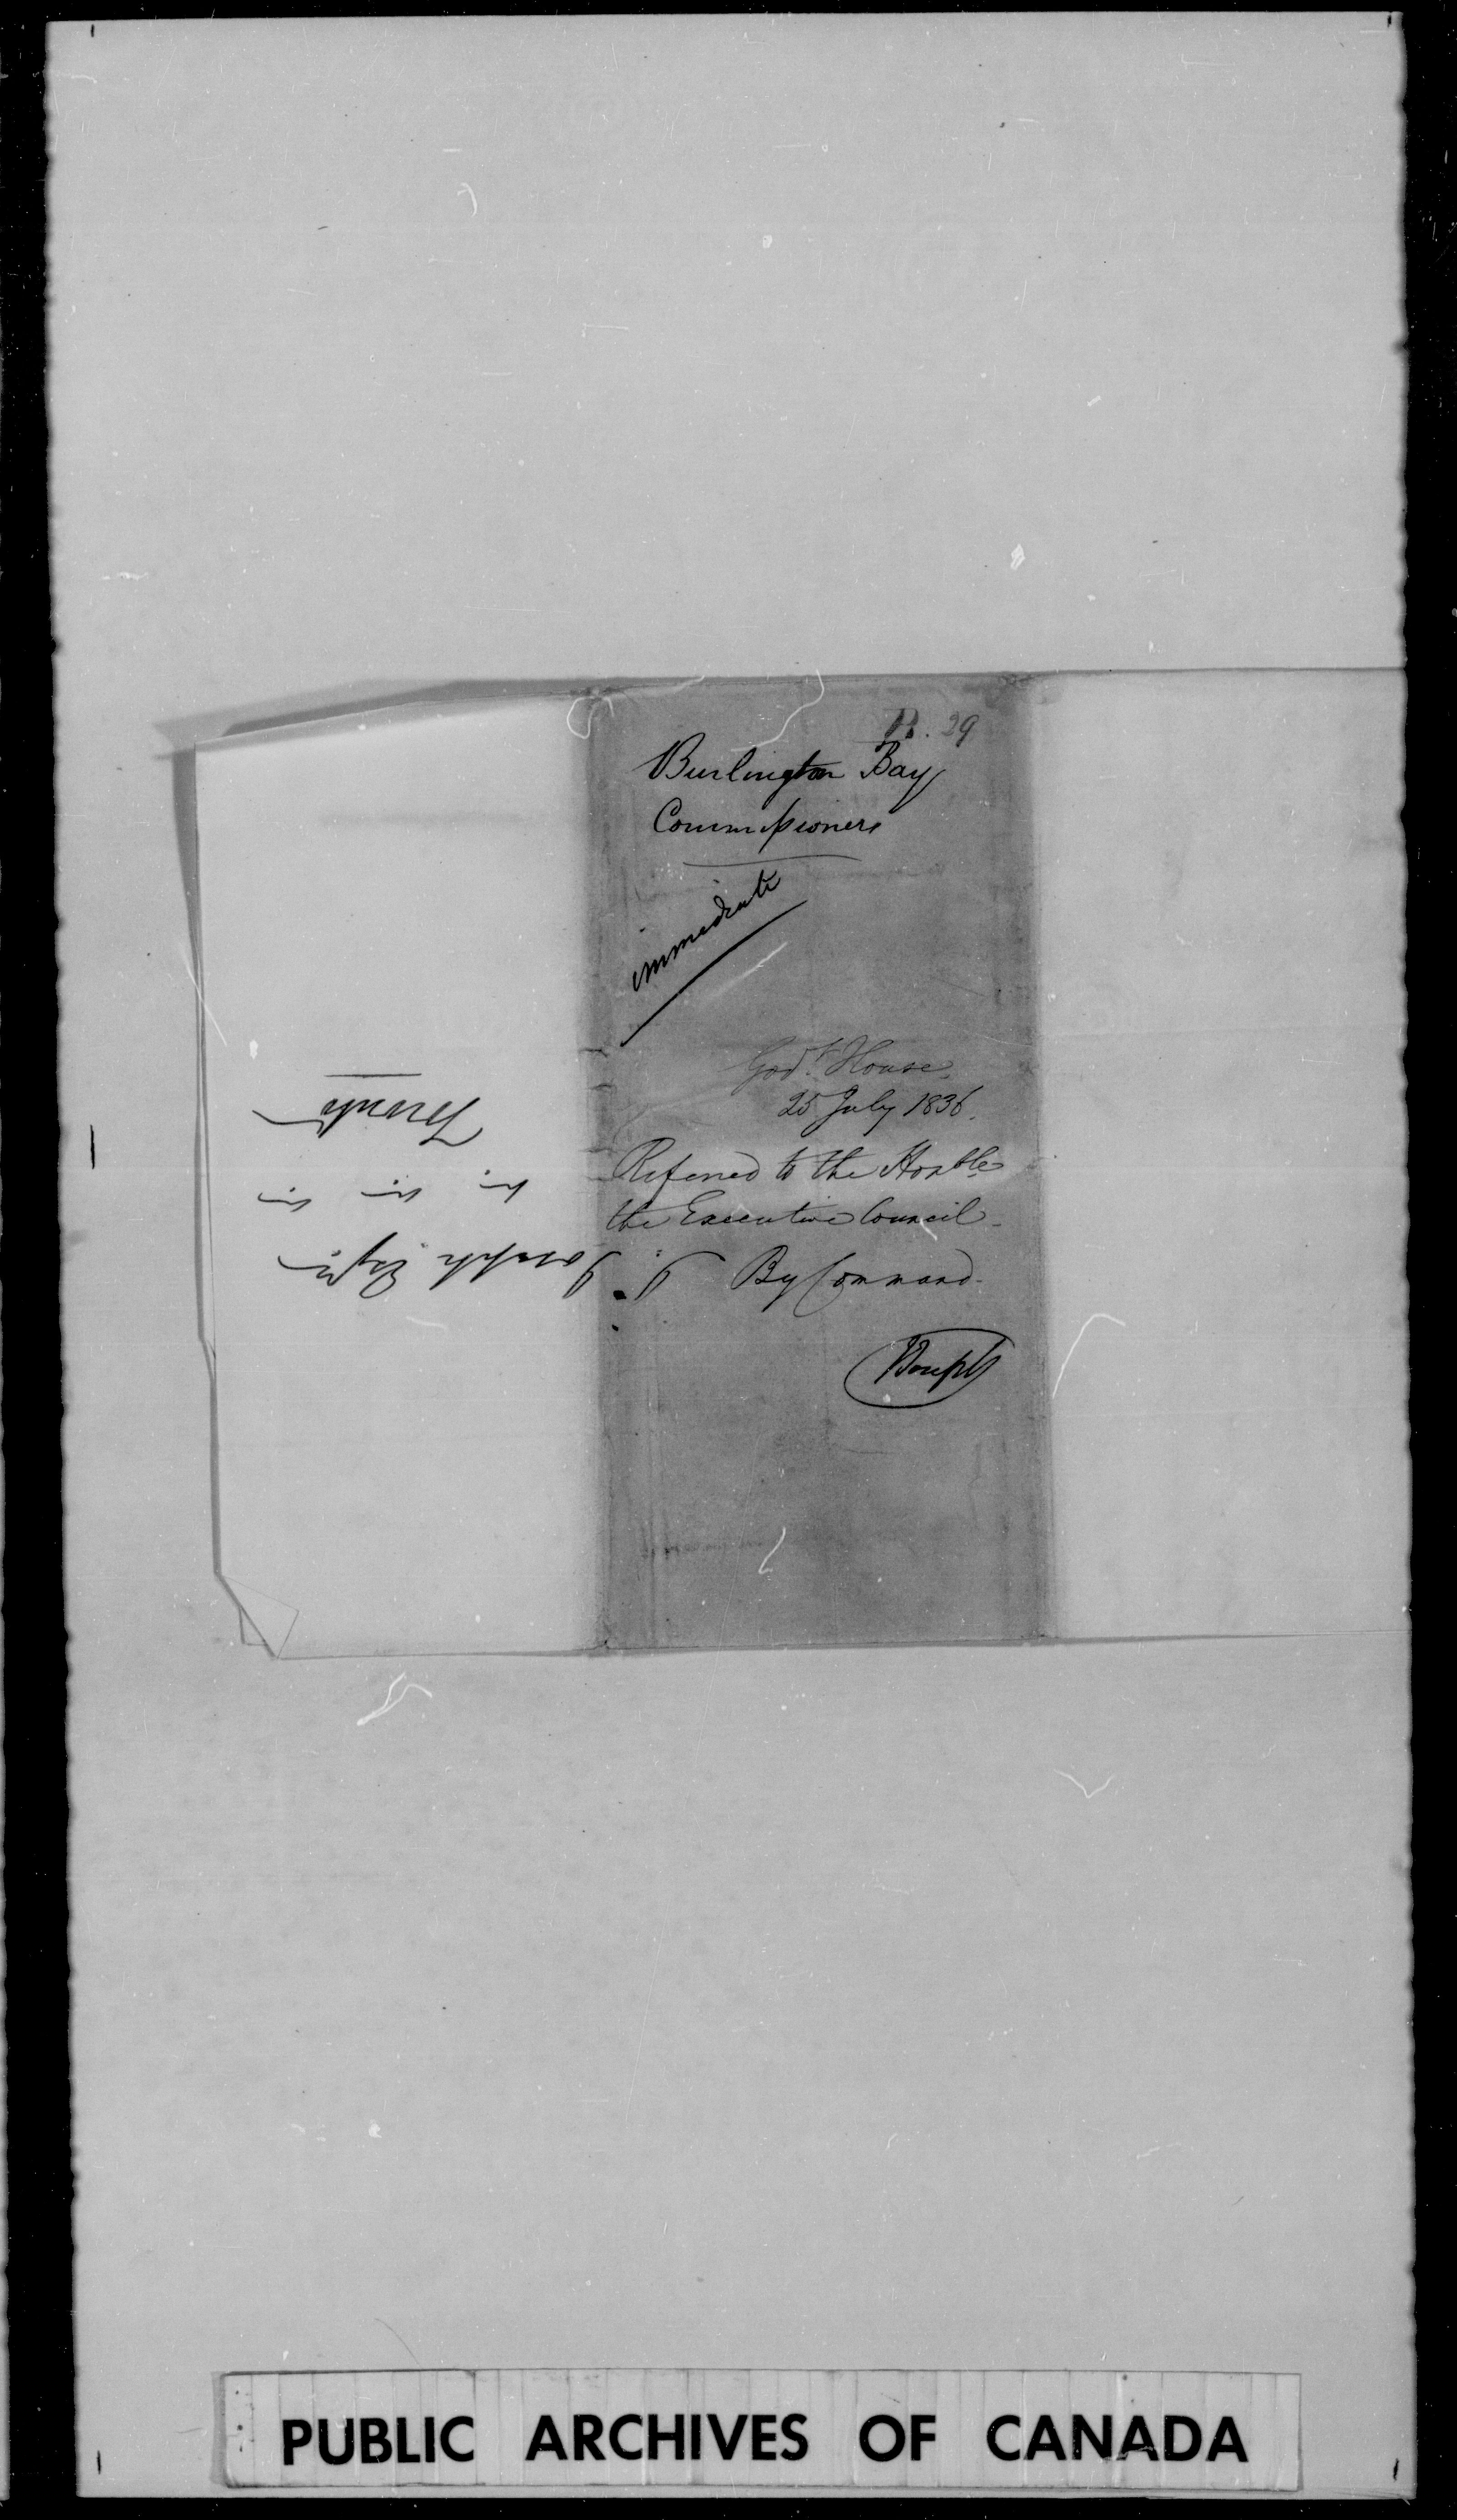 B. 29
Burlington Bay
Commissioners
immediate
Govt. House
25 July 1836.
Referred to the Honble
the Executive Council
By Command
J. Joseph
J. Joseph Esqr
&c &c &c
Toronto
PUBLIC ARCHIVES OF CANADA